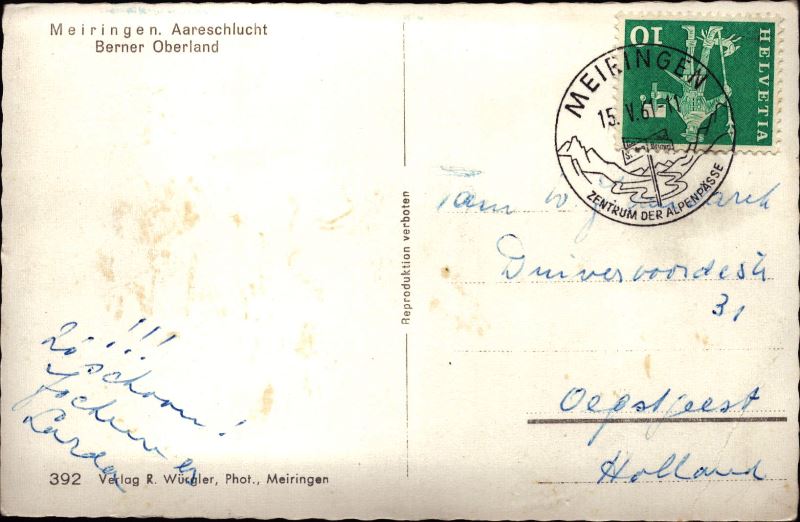 Meiringen. Aareschlucht
Berner Oberland
HELVETIA
10
MEIRINGEN
15. V. 61-11
ZENTRUM DER ALPENPÄSSE
Reproduktion verboten
Fam
Duivenvoordestr
31
Oegstgeest
Holland
!!!
Zó schoon!
Jochum en
392 Verlag R. Würgler, Phot., Meiringen